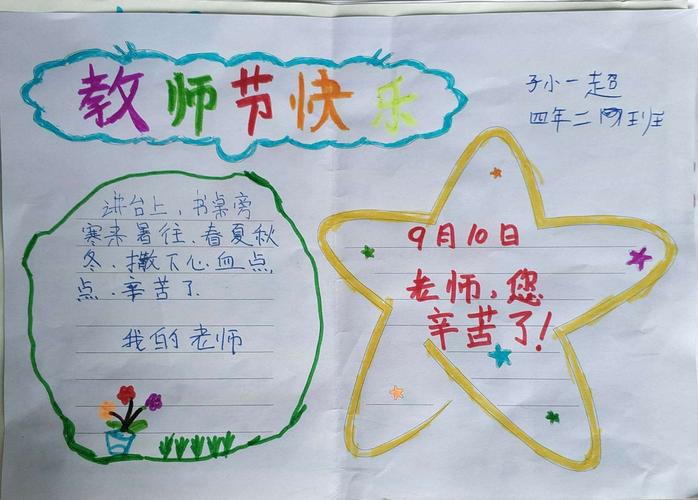 教师节快乐
子小一超
四年二班
讲台上、书桌旁
寒来暑往、春夏秋
冬、撒下心血点
点、辛苦了
我的老师
9月10日
老师,您
辛苦了!